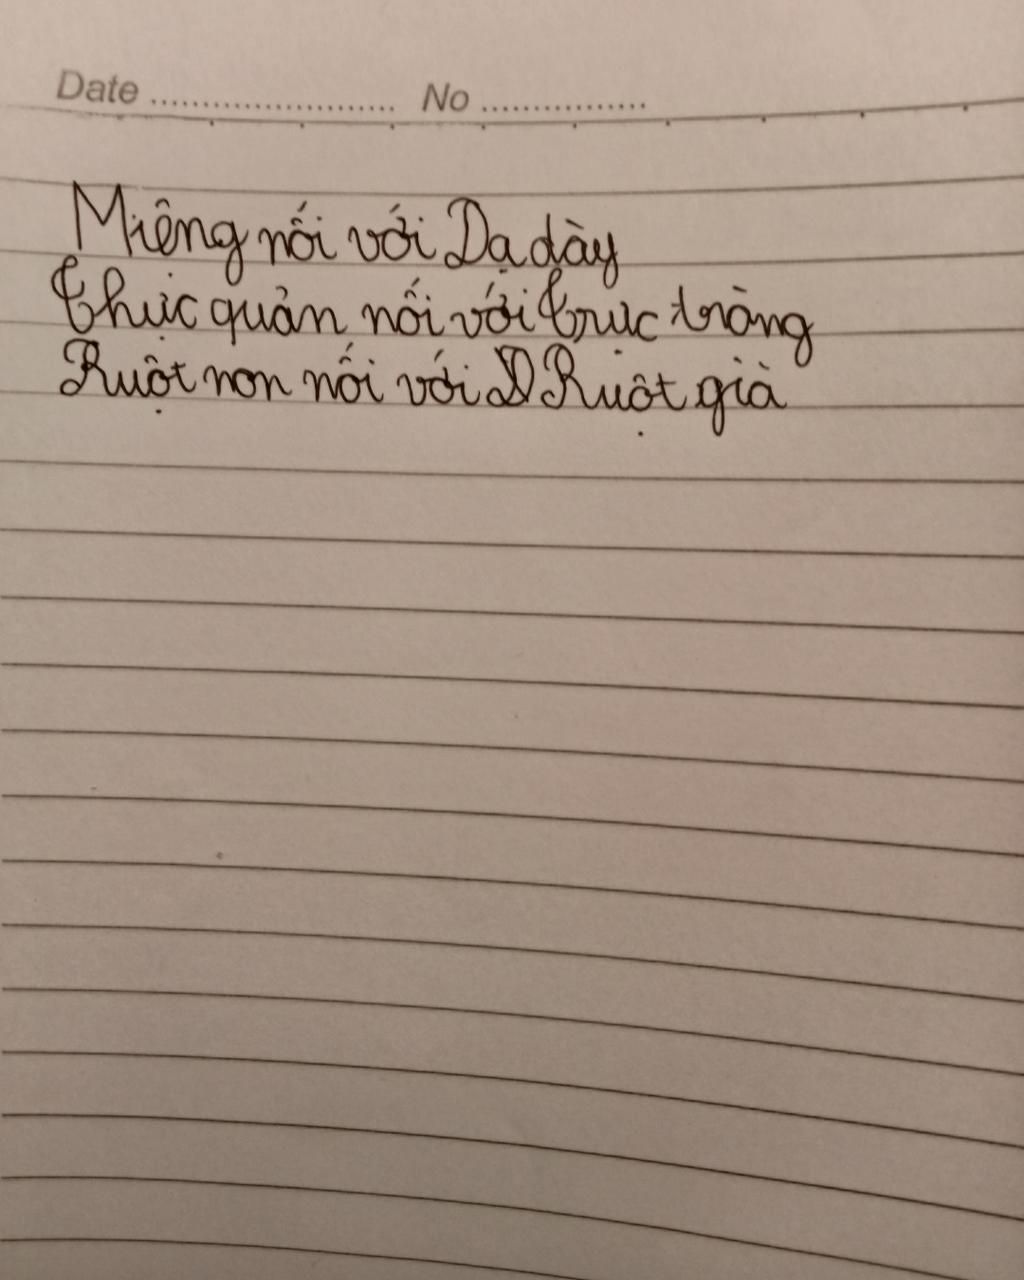 Date ........................ No ................
Miệng nối với Dạ dày
Thực quản nối với Trực tràng
Ruột non nối với Ruột già